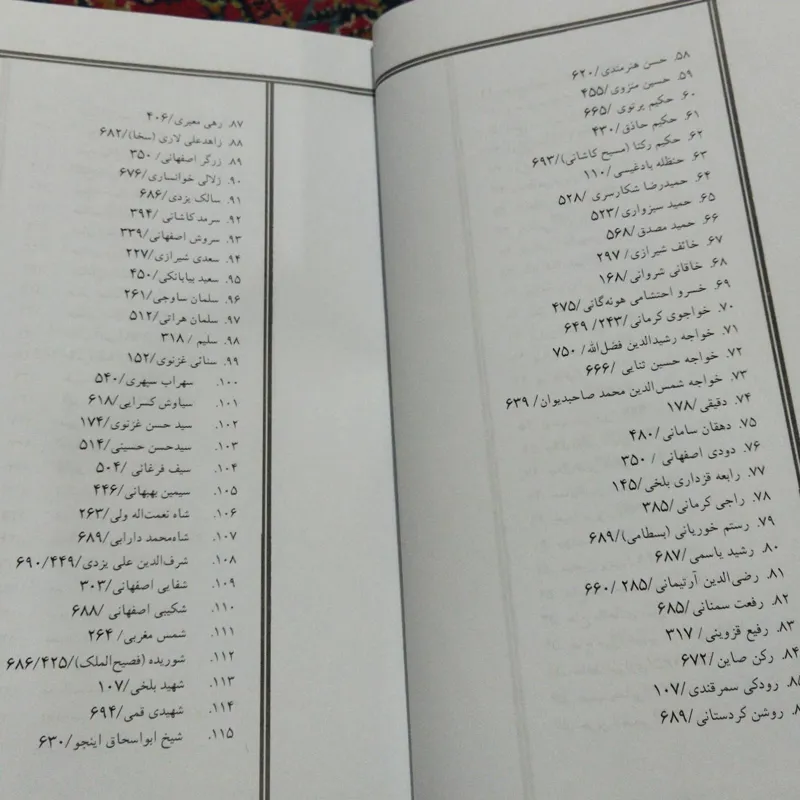 ۵۸. حسن هنرمندی/۶۲۰
۵۹. حسین منزوی/۴۵۵
۶۰. حکیم پرتوی /۶۶۵
۶۱. حکیم حاذق/۴۳۰
۶۲. حکیم رکنا (مسیح کاشانی)/۶۹۳
۶۳. حنظله بادغیسی/۱۱۰
۶۴. حمیدرضا شکارسری /۵۲۸
۶۵. حمید سبزواری/۵۲۳
۶۶. حمید مصدق/۵۶۸
۶۷. خائف شیرازی/ ۲۹۷
۶۸. خاقانی شروانی/۱۶۸
۶۹. خسرو احتشامی هونه‌گانی/۴۷۵
۷۰. خواجوی کرمانی/۲۴۳/ ۶۴۹
۷۱. خواجه رشیدالدین فضل‌الله/ ۷۵۰
۷۲. خواجه حسین ثنایی /۶۶۶
۷۳. خواجه شمس‌الدین محمد صاحبدیوان/ ۶۳۹
۷۴. دقیقی/۱۷۸
۷۵. دهقان سامانی/۴۸۰
۷۶. دودی اصفهانی / ۳۵۰
۷۷. رابعه قزداری بلخی/۱۴۵
۷۸. راجی کرمانی/۳۸۵
۷۹. رستم خوریانی (بسطامی)/۶۸۹
۸۰. رشید یاسمی/۶۸۷
۸۱. رضی‌الدین آرتیمانی/۲۸۵ /۶۶۰
۸۲. رفعت سمنانی /۶۸۵
۸۳. رفیع قزوینی/ ۳۱۷
۸۴. رکن صاین /۶۷۲
۸۵. رودکی سمرقندی/۱۰۷
روشن کردستانی/۶۸۹
۸۷. رهی معیری/۴۰۶
۸۸. زاهدعلی لاری (سخا)/۶۸۲
۸۹. زرگر اصفهانی/ ۳۵۰
۹۰. زلالی خوانساری/۶۷۶
۹۱. سالک یزدی/۶۸۶
۹۲. سرمد کاشانی /۳۹۴
۹۳. سروش اصفهانی/۳۳۹
۹۴. سعدی شیرازی/۲۲۷
۹۵. سعید بیابانکی/۴۵۰
۹۶. سلمان ساوجی/۲۶۱
۹۷. سلمان هراتی/۵۱۲
۹۸. سلیم / ۳۱۸
۹۹. سنائی غزنوی/۱۵۲
۱۰۰. سهراب سپهری/۵۴۰
۱۰۱. سیاوش کسرایی/۶۱۸
۱۰۲. سید حسن غزنوی/۱۷۴
۱۰۳. سیدحسن حسینی/۵۱۴
۱۰۴. سیف فرغانی /۵۰۴
۱۰۵. سیمین بهبهانی/۴۴۶
۱۰۶. شاه نعمت‌اله ولی/۲۶۳
۱۰۷. شاه‌محمد دارابی/۶۸۹
۱۰۸. شرف‌الدین علی یزدی/۴۴۹/۶۹۰
۱۰۹. شفایی اصفهانی/۳۰۳
۱۱۰. شکیبی اصفهانی /۶۸۸
۱۱۱. شمس مغربی/ ۲۶۴
۱۱۲. شوریده (فصیح‌الملک)/۴۲۵/۶۸۶
۱۱۳. شهید بلخی/۱۰۷
۱۱۴. شهیدی قمی/۶۹۴
۱۱۵. شیخ ابواسحاق اینجو/۶۳۰